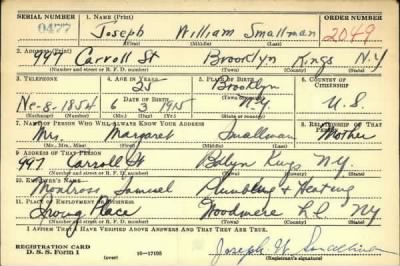 SERIAL NUMBER 1. NAME (Print) ORDER NUMBER
0477 Joseph William Smallman 2049
(First) (Middle) (Last)
2. ADDRESS (Print)
997 Carroll St Brooklyn Kings N.Y
(Number and street or R. F. D. number) (Town) (County) (State)
3. TELEPHONE 4. AGE IN YEARS 5. PLACE OF BIRTH 6. COUNTRY OF CITIZENSHIP
25 Brooklyn
DATE OF BIRTH (Town or county)
Ne-8-1854 6 3 1915 N.Y. U.S.
(Exchange) (Number) (Mo.) (Day) (Yr.) (State or country)
7. NAME OF PERSON WHO WILL ALWAYS KNOW YOUR ADDRESS 8. RELATIONSHIP OF THAT PERSON
Mrs. Margaret Smallman Mother
(Mr., Mrs., Miss) (First) (Middle) (Last)
9. ADDRESS OF THAT PERSON
997 Carroll St Bklyn Kings N.Y.
(Number and street or R. F. D. number) (Town) (County) (State)
10. EMPLOYER'S NAME
Montross Samuel Plumbing & Heating
11. PLACE OF EMPLOYMENT OR BUSINESS
Place Woodmere L.I. NY
(Number and street or R. F. D. number) (Town) (County) (State)
I AFFIRM THAT I HAVE VERIFIED ABOVE ANSWERS AND THAT THEY ARE TRUE.
REGISTRATION CARD
D. S. S. FORM 1 (over) 16-17105 Joseph W Smallman
(Registrant's signature)